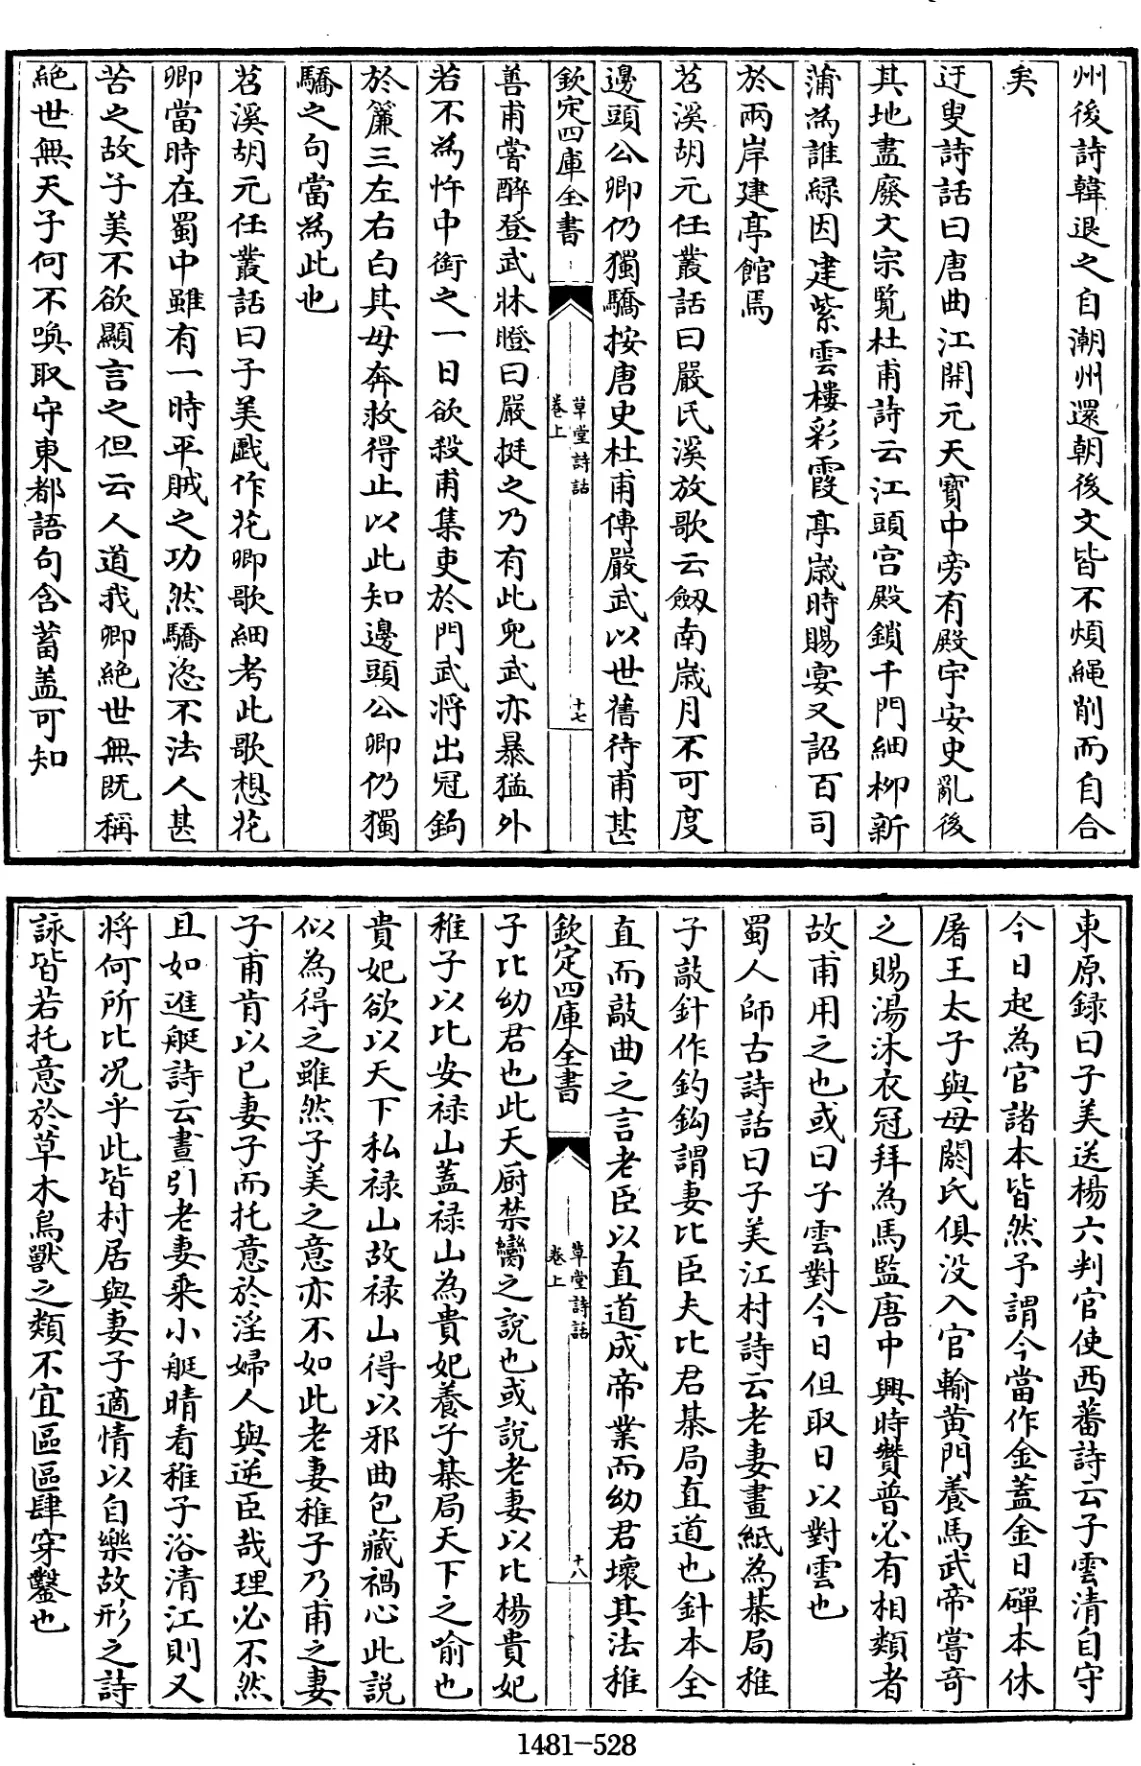 州後詩韓退之自潮州還朝後文皆不煩繩削而自合
矣
迂叟詩話曰唐曲江開元天寶中旁有殿宇安史亂後
其地盡廢文宗覽杜甫詩云江頭宮殿鎖千門細柳新
蒲為誰緑因建紫雲樓彩霞亭歳時賜宴又詔百司
於兩岸建亭館焉
苕溪胡元任叢話曰嚴氏溪放歌云劔南歳月不可度
邊頭公卿仍獨驕按唐史杜甫傳嚴武以世舊待甫甚
欽定四庫全書
草堂詩話
卷上
十七
善甫嘗醉登武牀瞪曰嚴挺之乃有此兒武亦暴猛外
若不為忤中銜之一日欲殺甫集吏於門武將出冠鉤
於簾三左右白其母奔救得止以此知邊頭公卿仍獨
驕之句當為此也
苕溪胡元任叢話曰子美戯作花卿歌細考此歌想花
卿當時在蜀中雖有一時平賊之功然驕恣不法人甚
苦之故子美不欲顯言之但云人道我卿絶世無既稱
絶世無天子何不喚取守東都語句含蓄盖可知
東原録曰子美送楊六判官使西蕃詩云子雲清自守
今日起為官諸本皆然予謂今當作金蓋金日磾本休
屠王太子與母閼氏俱没入官輸黄門養馬武帝嘗奇
之賜湯沐衣冠拜為馬監唐中興時贊普必有相類者
故甫用之也或曰子雲對今日但取日以對雲也
蜀人師古詩話曰子美江村詩云老妻畫紙為棊局稚
子敲針作釣鉤謂妻比臣夫比君棊局直道也針本全
直而敲曲之言老臣以直道成帝業而幼君壞其法稚
欽定四庫全書
草堂詩話
卷上
十八
子比幼君也此天厨禁臠之說也或說老妻以比楊貴妃
稚子以比安禄山蓋禄山為貴妃養子棊局天下之喻也
貴妃欲以天下私禄山故禄山得以邪曲包藏禍心此説
似為得之雖然子美之意亦不如此老妻稚子乃甫之妻
子甫肯以已妻子而托意於淫婦人與逆臣哉理必不然
且如進艇詩云晝引老妻乘小艇晴看稚子浴清江則又
將何所比况乎此皆村居與妻子適情以自樂故形之詩
詠皆若托意於草木鳥獸之類不宜區區肆穿鑿也
1481-528